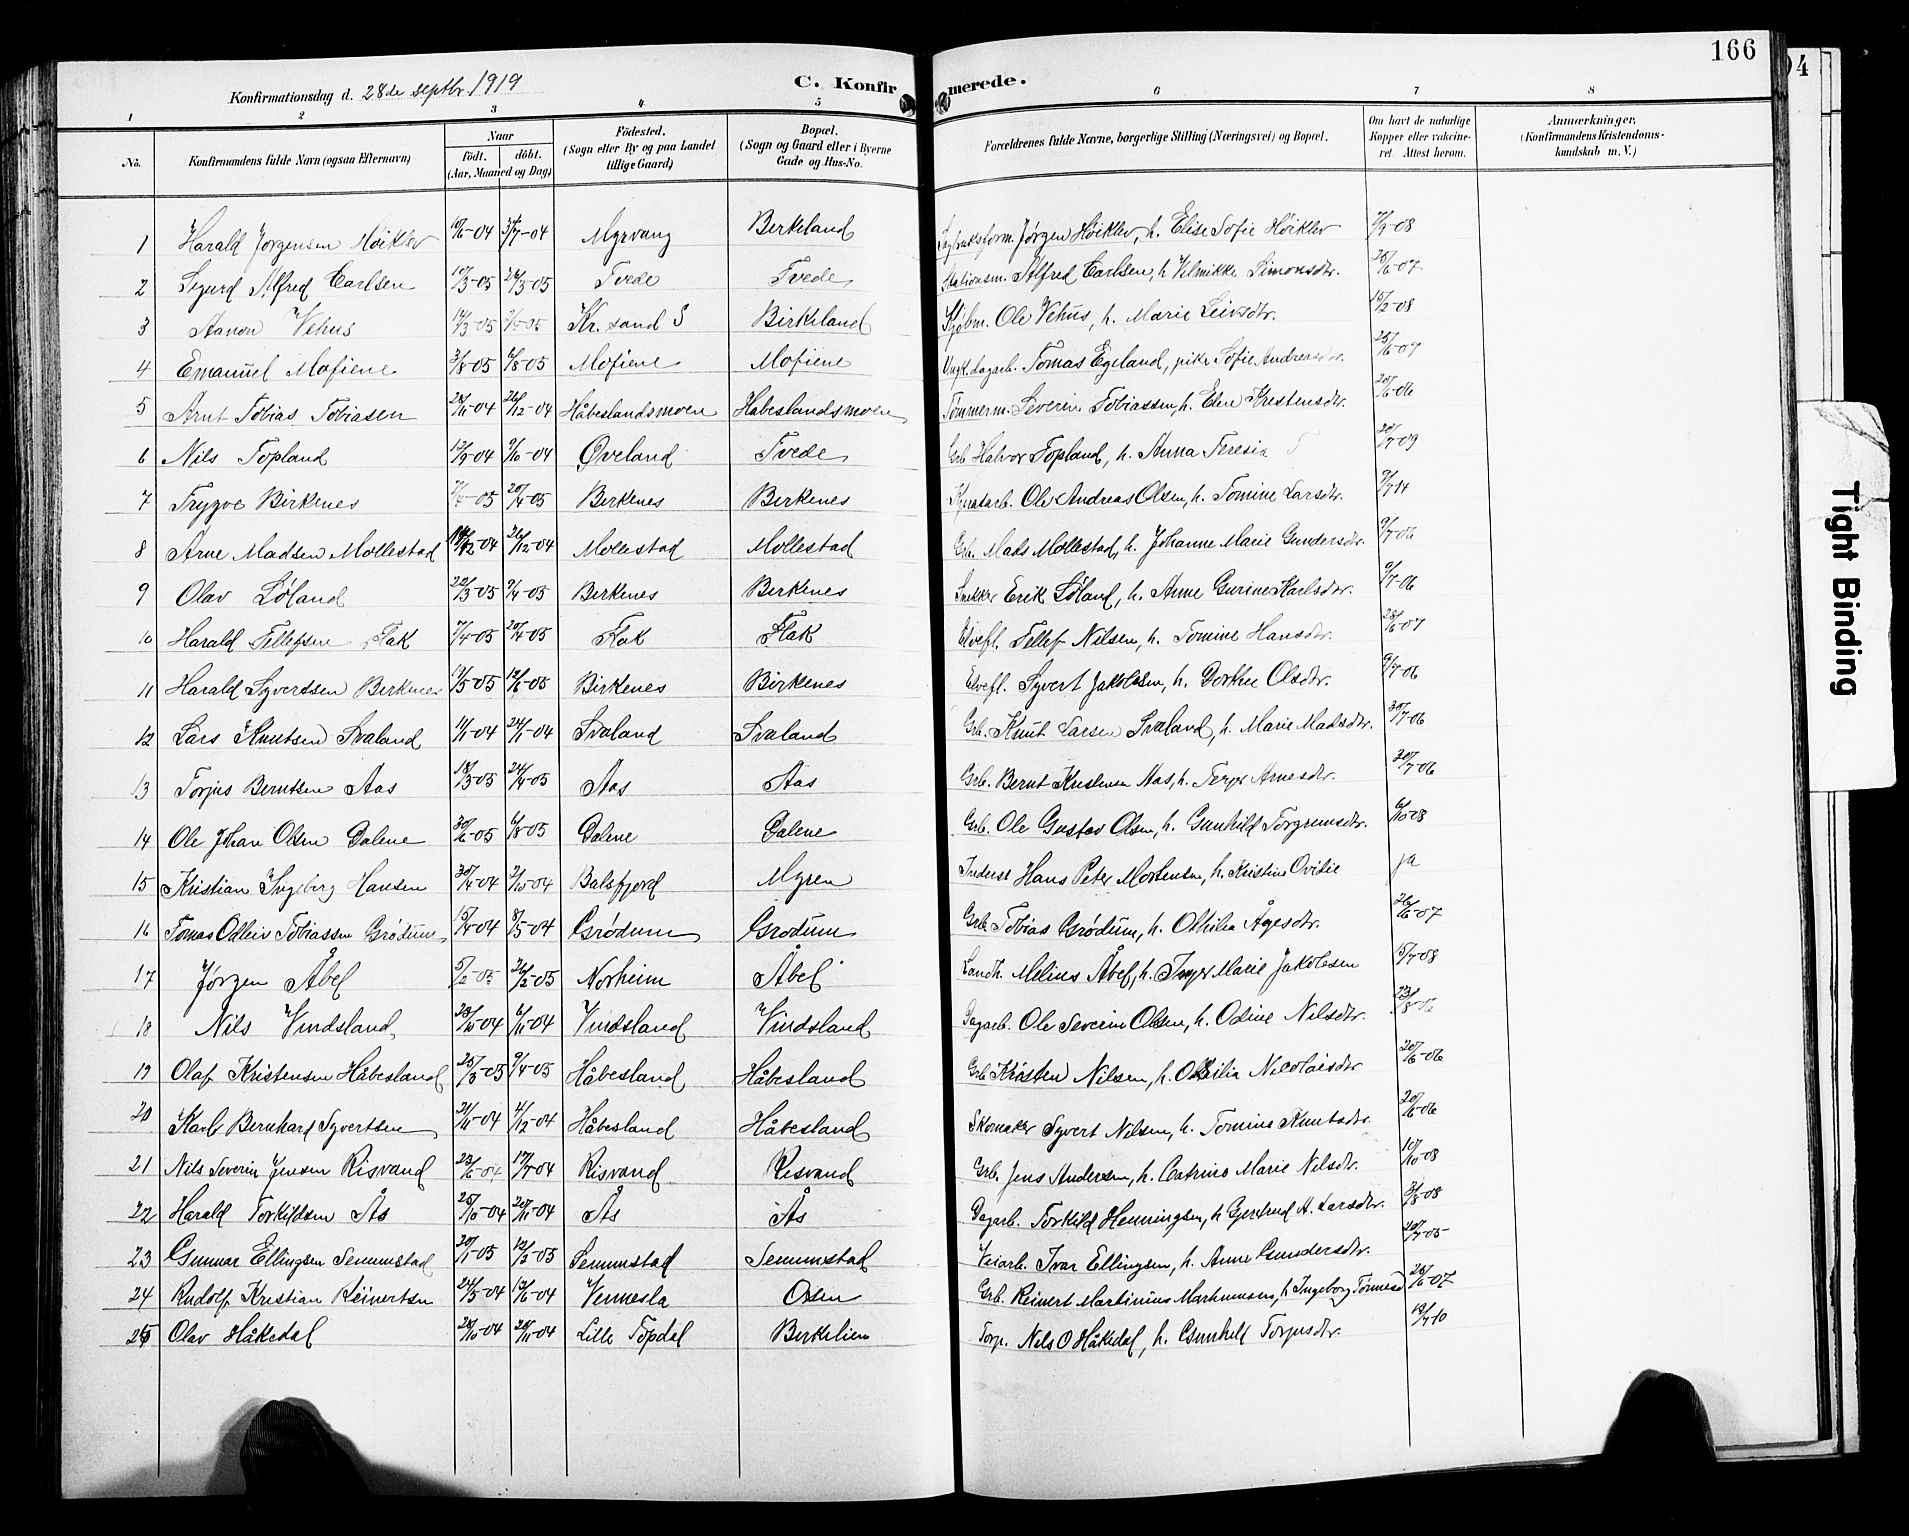 166
Konfirmationsdag d. 28de septbr 1919
C. Konfirmerede.
1 2 3 4 5 6 7 8
No. Konfirmandens fulde Navn (ogsaa Efternavn) Naar födt. döbt. (Aar, Maaned og Dag) Födested. (Sogn eller By og paa Landet tillige Gaard) Bopæl. (Sogn og Gaard eller i Byerne Gade og Hus-No. Forældrenes fulde Navne, borgerlige Stilling (Næringsvei) og Bopæl. Om havt de naturlige Kopper eller vaccineret. Attest herom. Anmærkninger. (Konfirmandens Kristendomskundskab m. V.)
1 Harald Jørgensen Høiklev 10/6-04 3/7-04 Myrvang Birkeland Jørgen Høiklev, h. Elise Sofie Høiklev 7/9-08
2 Sigurd Alfred Carlsen 10/3-05 26/3-05 Tvede Tvede Stationsm. Alfred Carlsen, h. Vilmikke Simonsdtr. 25/6-07
3 Aanon Vehus 14/3-05 Kr.sand S Birkeland Ole Vehus, h. Marie Leivsdtr. 15/2-08
4 Emanuel Mofiene 3/8-05 6/8-05 Mofiene Mofiene Ungk. dagarb. Tomas Egeland, pike Sofie Andreasdtr. 25/6-07
5 Arnt Tobias Tobiasen 28/11-04 26/12-04 Håbeslandsmoen Håbeslandsmoen Tømmerm. Severin Tobiassen, h. Elen Kristensdtr. 20/6-06
6 Nils Topland 12/9-04 9/10-04 Øveland Tvede Grb. Halvor Topland, h. Anna Teresia T 20/7-09
7 Trygve Birkenes 7/4-05 20/4-05 Birkenes Birkenes Ole Andreas Olsen, h. Tomine Larsdtr. 9/7-14
8 Arne Madsen Mollestad 26/12-04 Mollestad Mollestad Grb. Mads Mollestad, h. Johanne Marie Gundersdtr. 9/7-06
9 Olav Løland 22/3-05 9/4-05 Birkenes Birkenes Snekker Erik Løland, h. Anne Gurine Karlsdtr. 9/7-06
10 Harald Tellefsen Flak 7/4-05 20/4-05 Flak Flak Elvefl. Tellef Nilsen, h. Tomine Hansdtr. 28/6-07
11 Harald Syvertsen Birkenes 19/5-05 12/6-05 Birkenes Birkenes Elvefl. Syvert Jakobsen, h. Dorthe Olsdtr. 9/7-06
12 Lars Knutsen Svaland 11/1-04 24/1-04 Svaland Svaland Grb. Knut Larsen Svaland, h. Marie Madsdtr. 30/7-06
13 Torjus Berntsen Aas 18/3-05 24/4-05 Aas Aas Grb. Bernt Kristensen Aas, h. Terjer Arnesdtr. 30/7-06
14 Ole Johan Olsen Dalene 30/6-05 6/8-05 Dalene Dalene Grb. Ole Gustav Olsen, h. Gunhild Torgrimsdtr. 6/10-08
15 Kristian Ingeberg Hansen 30/4-04 2/10-04 Balsfjord Myren Inderst Hans Peter Mortensen, h. Kristine Ovidie ja
16 Tomas Odleiv Tobiassen Grødum 15/4-04 8/5-04 Grødum Grødum Grb. Tobias Grødum, h. Othilia Ågesdtr. 26/6-07
17 Jørgen Åbel 5/2-05 26/2-05 Norheim Åbel Landh. Melius Åbel, h. Inger Marie Jakobsen 15/7-08
18 Nils Vindsland 28/10-04 6/11-04 Vindsland Vindsland Dagarb. Ole Severin Olsen, h. Odine Nilsdtr. 23/8-06
19 Olaf Kristensen Håbesland 25/3-05 9/4-05 Håbesland Håbesland Grb. Kristen Nilsen, h. Nicolaisdtr 20/6-06
20 Karl Bernhard Syvertsen 21/11-04 4/12-04 Håbesland Håbesland Skomaker Syvert Nilsen, h. Tomine Knutsdtr. 20/6-06
21 Nils Severin Jensen Risvand 23/6-04 17/7-04 Risvand Risvand Grb. Jens Andersen, h. Catrine Marie Nilsdtr. 10/10-08
22 Harald Torkildsen Ås 25/10-04 20/11-04 Ås Ås Dagarb. Torkild Henningsen, h. Gertrud A. Larsdtr. 3/8-08
23 Gunnar Ellingsen Senumstad 20/1-05 12/3-05 Senumstad Senumstad Veiarb. Ivar Ellingsen, h. Anne Gundersdtr. 20/7-05
24 Rudolf Kristian Reinertsen 24/5-04 12/6-04 Vennesla Osen Grb. Reinert Martinius h. Ingeborg 26/6-07
25 Olav Håkedal 20/10-04 20/11-04 Lille Topdal Birkelien Torp. Nils O Håkedal, h. Gunhild Torjusdtr. 19/7-10
Tight Binding